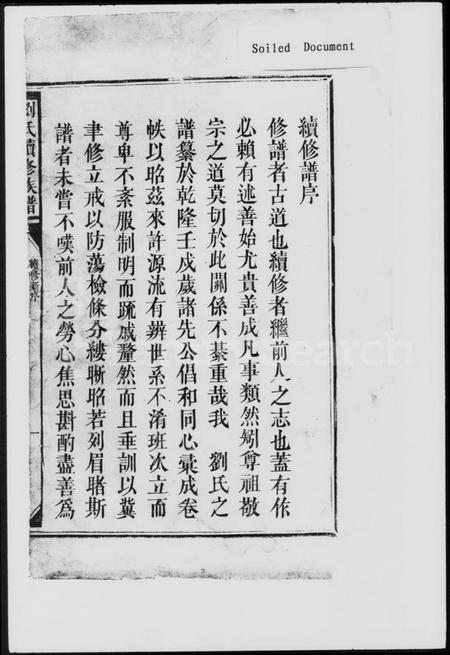 Soiled Document
續修譜序
修譜者古道也續修者繼前人之志也蓋有作
必賴有述善始尤貴善成凡事類然矧尊祖敬
宗之道莫切於此關係不綦重哉我 劉氏之
譜纂於乾隆壬戍歲諸先公倡和同心彚成卷
帙以昭茲來許源流有辨世系不淆班次立而
尊卑不紊服制明而疏戚釐然而且垂訓以冀
聿修立戒以防蕩檢條分縷晰昭若列眉睹斯
譜者未嘗不嘆前人之勞心焦思斟酌盡善爲
劉氏續修族譜
續修新序